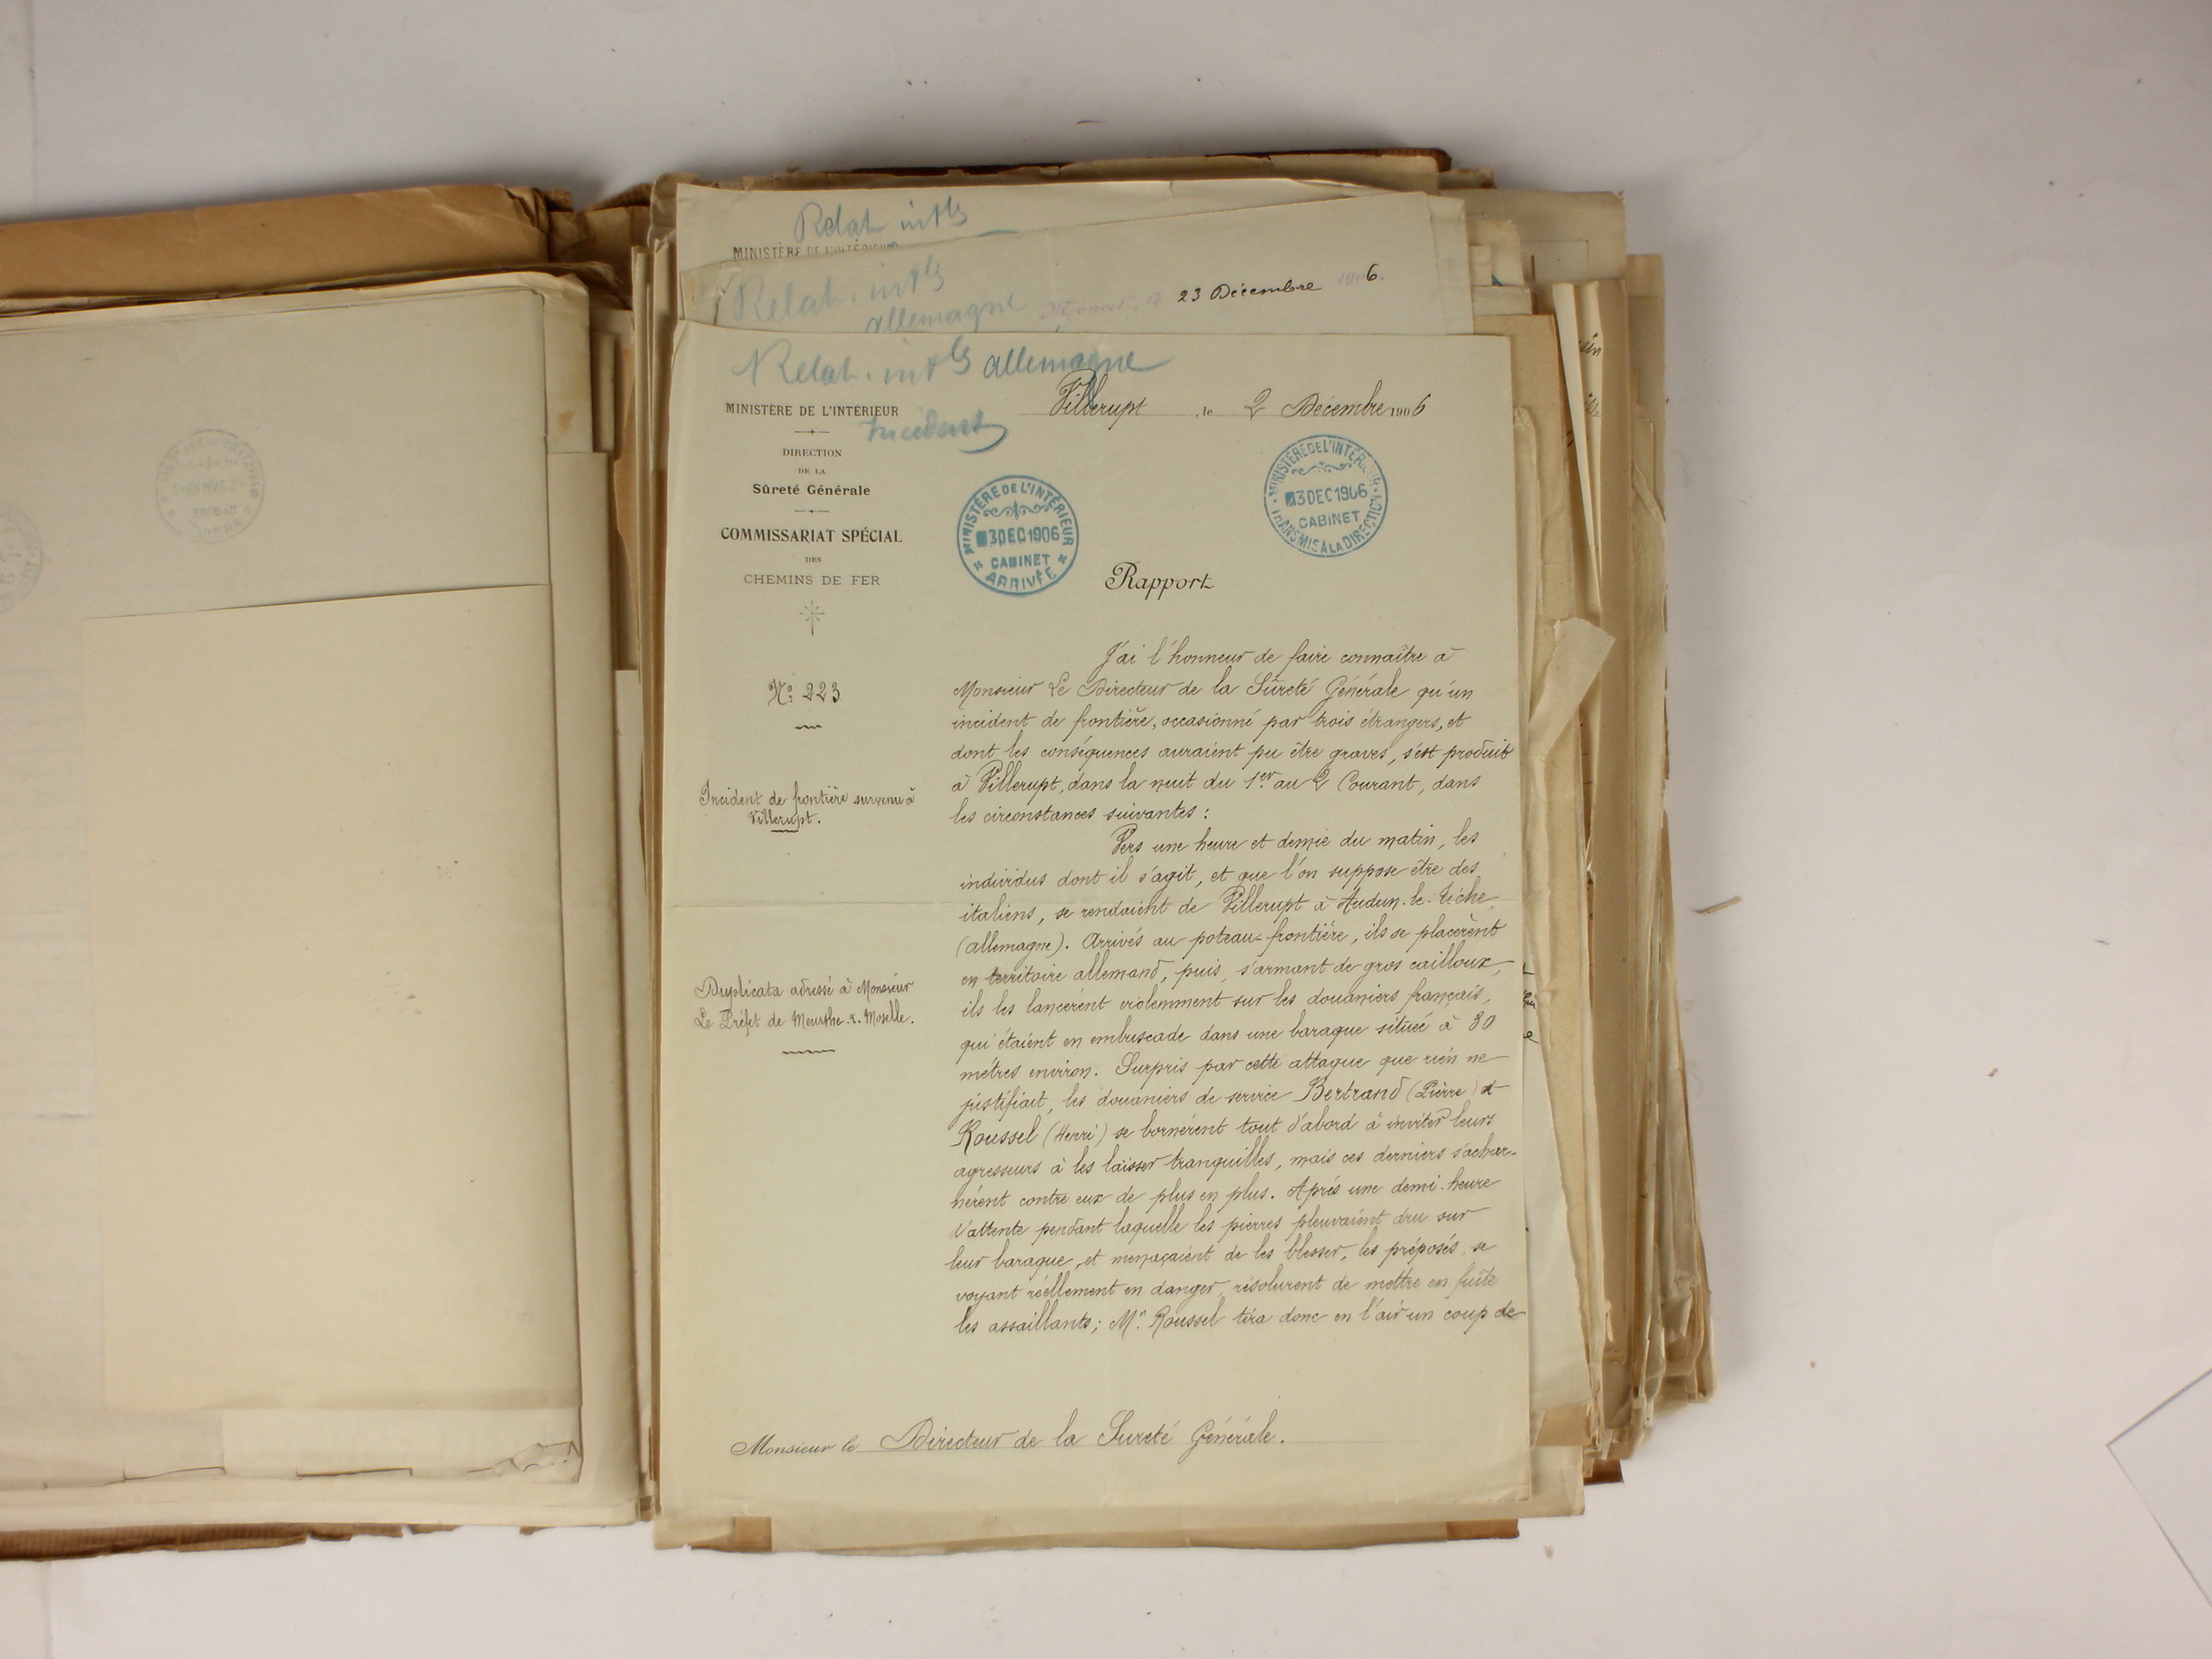 Relat. intles
MINISTÈRE DE L'INTÉRIEUR
Relat. intles
allemagne
23 Décembre 1906.
Relat. intles allemagne
Incident
MINISTÈRE DE L'INTÉRIEUR
DIRECTION
DE LA
Sûreté Générale
COMMISSARIAT SPÉCIAL
DES
CHEMINS DE FER
Villerupt, le 2 Décembre 1906
MINISTÈRE DE L'INTÉRIEUR
3 DEC 1906
CABINET
ARRIVÉE
MINISTÈRE DE L'INTÉRIEUR
3 DEC 1906
CABINET
TRANSMIS À LA DIRECTION
Rapport
No 223
Incident de frontière survenu à
Villerupt.
Duplicata adressé à Monsieur
Le Préfet de Meurthe-&-Moselle.
J'ai l'honneur de faire connaître à
Monsieur Le Directeur de la Sûreté Générale qu'un
incident de frontière, occasionné par trois étrangers, et
dont les conséquences auraient pu être graves, s'est produit
à Villerupt, dans la nuit du 1er au 2 Courant, dans
les circonstances suivantes :
Vers une heure et demie du matin, les
individus dont il s'agit, et que l'on suppose être des
italiens, se rendaient de Villerupt à Audun-le-Tiche,
(allemagne). Arrivés au poteau-frontière, ils se placèrent
en territoire allemand, puis, s'armant de gros cailloux,
ils les lancèrent violemment sur les douaniers français,
qui étaient en embuscade dans une baraque située à 30
mètres environ. Surpris par cette attaque que rien ne
justifiait, les douaniers de service Bertrand (Pierre) &
Roussel (Henri) se bornèrent tout d'abord à inviter leurs
agresseurs à les laisser tranquilles, mais ces derniers s'achar-
nèrent contre eux de plus en plus. Après une demi-heure
d'attente pendant laquelle les pierres pleuvaient dru sur
leur baraque, et menaçaient de les blesser, les préposés, se
voyant réellement en danger, résolurent de mettre en fuite
les assaillants; Mr. Roussel tira donc en l'air un coup de
Monsieur le Directeur de la Sureté Générale.